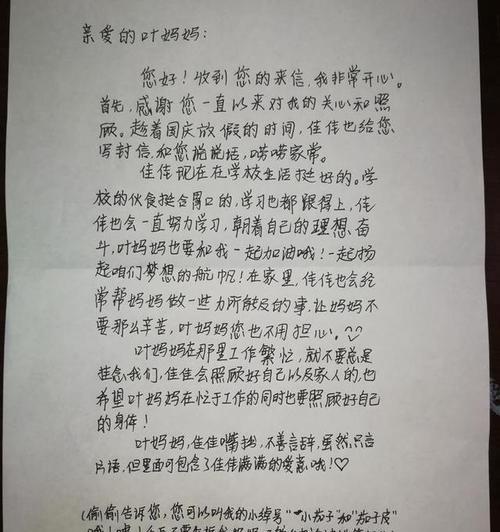 亲爱的叶妈妈:
您好!收到您的来信,我非常开心。
首先,感谢您一直以来对我的关心和照
顾。趁着国庆放假的时间,佳佳也给您
写封信,和您说说话,唠唠家常。
佳佳现在在学校生活挺好的。学
校的伙食挺合胃口的,学习也都跟得上,佳
佳也会一直努力学习,朝着自己的理想奋
斗,叶妈妈也要和我一起加油哦!一起扬
起咱们梦想的航帆!在家里,佳佳也会经
常帮妈妈做一些力所能及的事,让妈妈不
要那么辛苦,叶妈妈您也不用担心。♡
叶妈妈在那里工作繁忙,就不要总是
挂念我们,佳佳会照顾好自己以及家人的,也
希望叶妈妈在忙于工作的同时也要照顾好自己
的身体!
叶妈妈,佳佳嘴拙,不善言辞,虽然只言
片语,但里面可包含了佳佳满满的爱意哦!♡
(偷偷告诉您,您可以叫我的小绰号"小茄子"和"茄子皮"